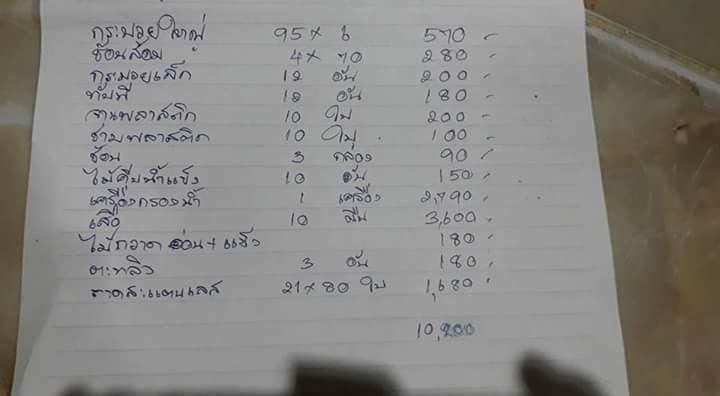 กระบวยใหญ่ 95 x 6 570 -
ช้อนส้อม 4 x 70 280 -
กระบวยเล็ก 12 อัน 200 -
ทับพี 12 อัน 180 -
จานพลาสติก 10 ใบ 200 -
ชามพลาสติก 10 ใบ 100 -
ช้อน 3 กล่อง 90 -
ไม้คีบน้ำแข็ง 10 อัน 150 -
เครื่องกรองน้ำ 1 เครื่อง 2,790 -
เสื่อ 10 ผืน 3,600 -
ไม้กวาด อ่อน + แข็ง 180 -
ตะหลิว 3 อัน 180 -
ถาดสะแตนเลส 21 x 80 ใบ 1,680 -
10,200